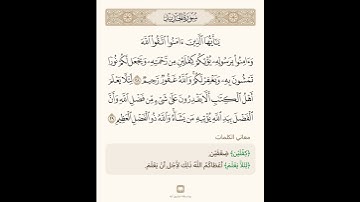 سُورَةُ الحَدِيدِ
يَـٰٓأَيُّهَا ٱلَّذِينَ ءَامَنُوا۟ ٱتَّقُوا۟ ٱللَّهَ
وَءَامِنُوا۟ بِرَسُولِهِۦ يُؤْتِكُمْ كِفْلَيْنِ مِن رَّحْمَتِهِۦ وَيَجْعَل لَّكُمْ نُورًا
تَمْشُونَ بِهِۦ وَيَغْفِرْ لَكُمْ ۚ وَٱللَّهُ غَفُورٌ رَّحِيمٌ ٢٨ لِّئَلَّا يَعْلَمَ
أَهْلُ ٱلْكِتَـٰبِ أَلَّا يَقْدِرُونَ عَلَىٰ شَىْءٍ مِّن فَضْلِ ٱللَّهِ ۙ وَأَنَّ
ٱلْفَضْلَ بِيَدِ ٱللَّهِ يُؤْتِيهِ مَن يَشَآءُ ۚ وَٱللَّهُ ذُو ٱلْفَضْلِ ٱلْعَظِيمِ ٢٩
معاني الكلمات
﴿كِفْلَيْنِ﴾ ضِعْفَيْنِ.
﴿لِئَلَّا يَعْلَمَ﴾ أَعْطَاكُمُ اللَّهُ ذَلِكَ لِأَجْلِ أَنْ يَعْلَمَ.